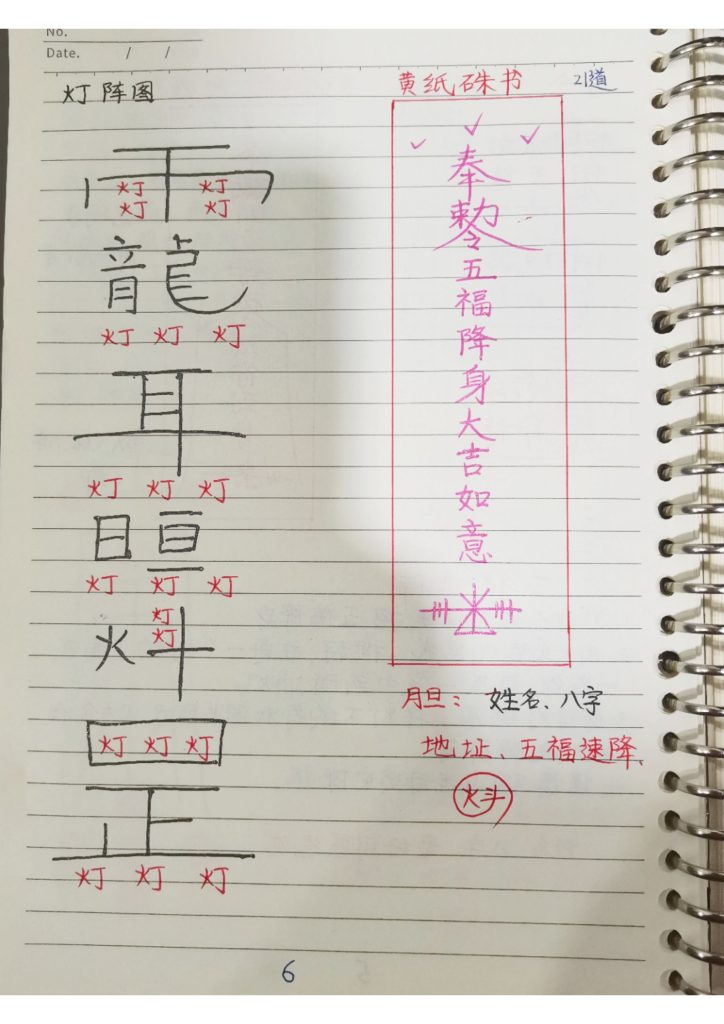 No.
Date. / /
灯阵图
灯 灯
灯 灯
龍
灯 灯 灯
耳
灯 灯 灯
灯 灯 灯
灯
灯
火
灯 灯 灯
正
灯 灯 灯
黄纺硃书 21道
奉
敕令
五
福
降
身
大
吉
如
意
月旦：姓名、八字
地址、五福速降、
6